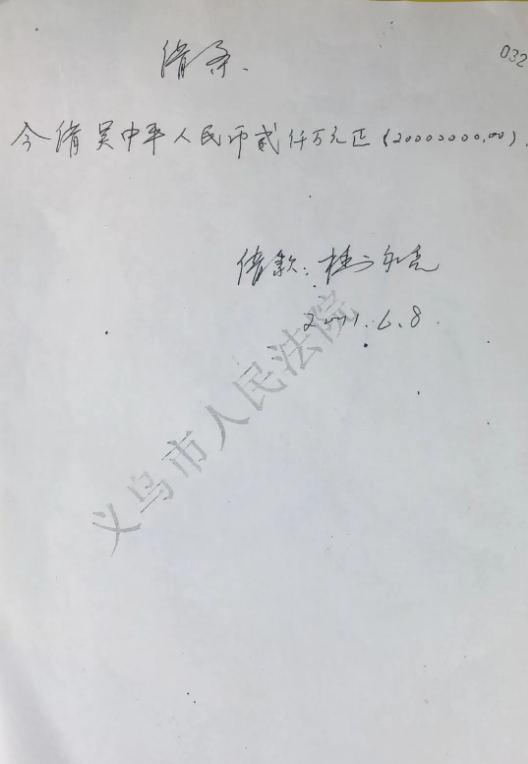 032
借条.
今借吴中平人民币贰仟万元正(20000000.00).
借款:
6.8.
义乌市人民法院